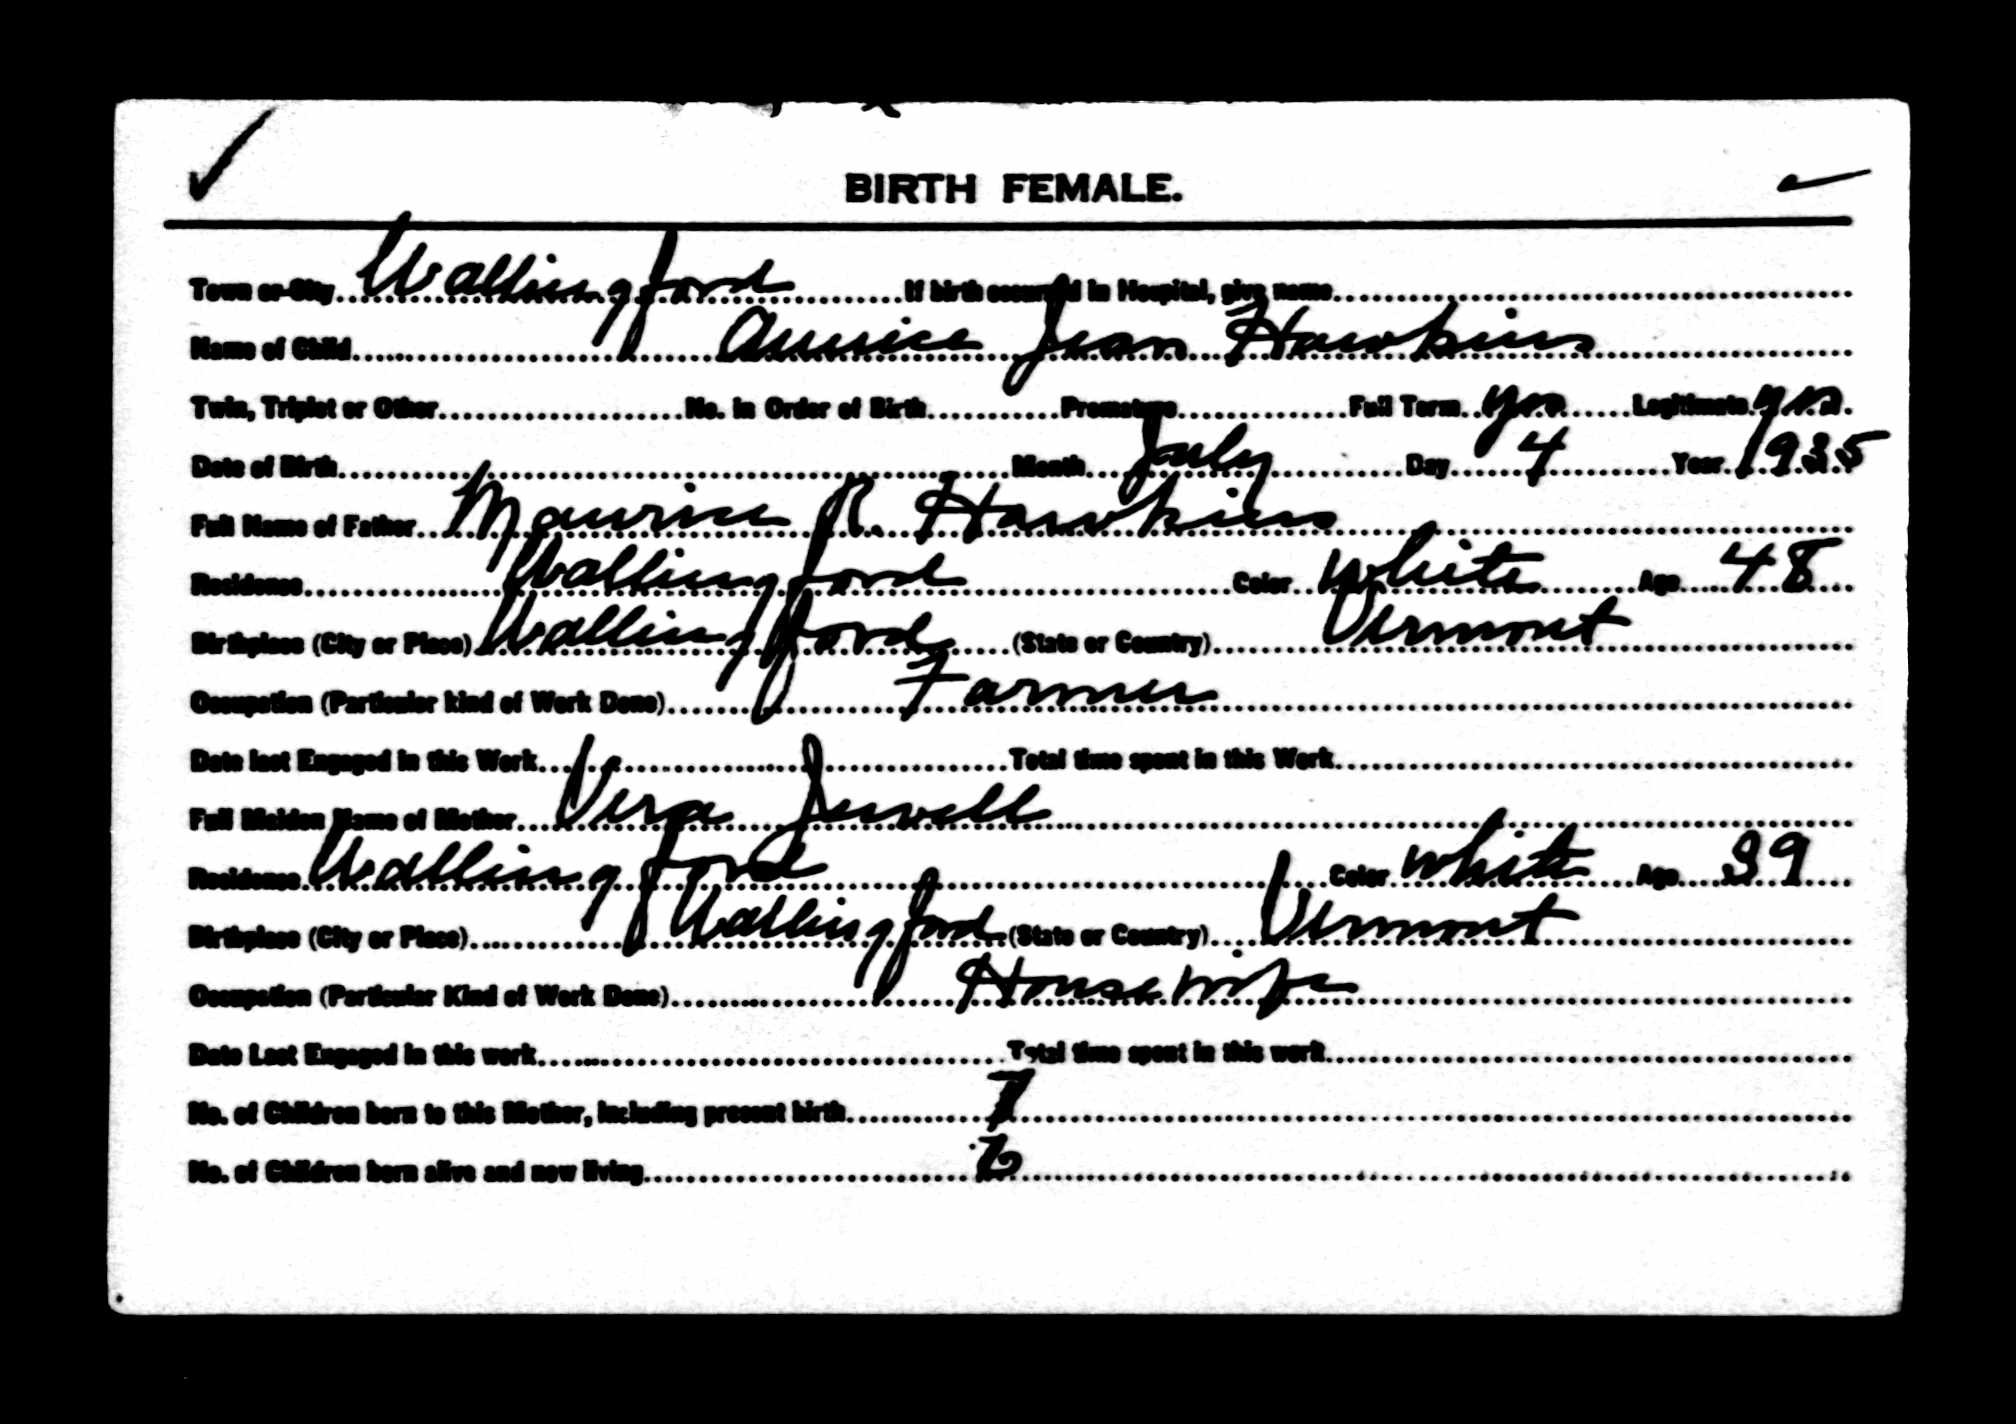 BIRTH FEMALE.
Town or City Wallingford If birth occurred in Hospital, give name
Name of Child Aurice Jean Hawkins
Twin, Triplet or Other No. in Order of Birth Premature Full Term yes Legitimate yes
Date of Birth Month July Day 4 Year 1935
Full Name of Father Maurice R. Hawkins
Residence Wallingford Color White Age 48
Birthplace (City or Place) Wallingford (State or Country) Vermont
Occupation (Particular kind of Work Done) Farmer
Date last Engaged in this Work Total time spent in this Work
Full Maiden Name of Mother Vera Jewell
Residence Wallingford Color White Age 39
Birthplace (City or Place) Wallingford (State or Country) Vermont
Occupation (Particular Kind of Work Done) Housewife
Date Last Engaged in this work Total time spent in this work
No. of Children born to this Mother, including present birth 7
No. of Children born alive and now living